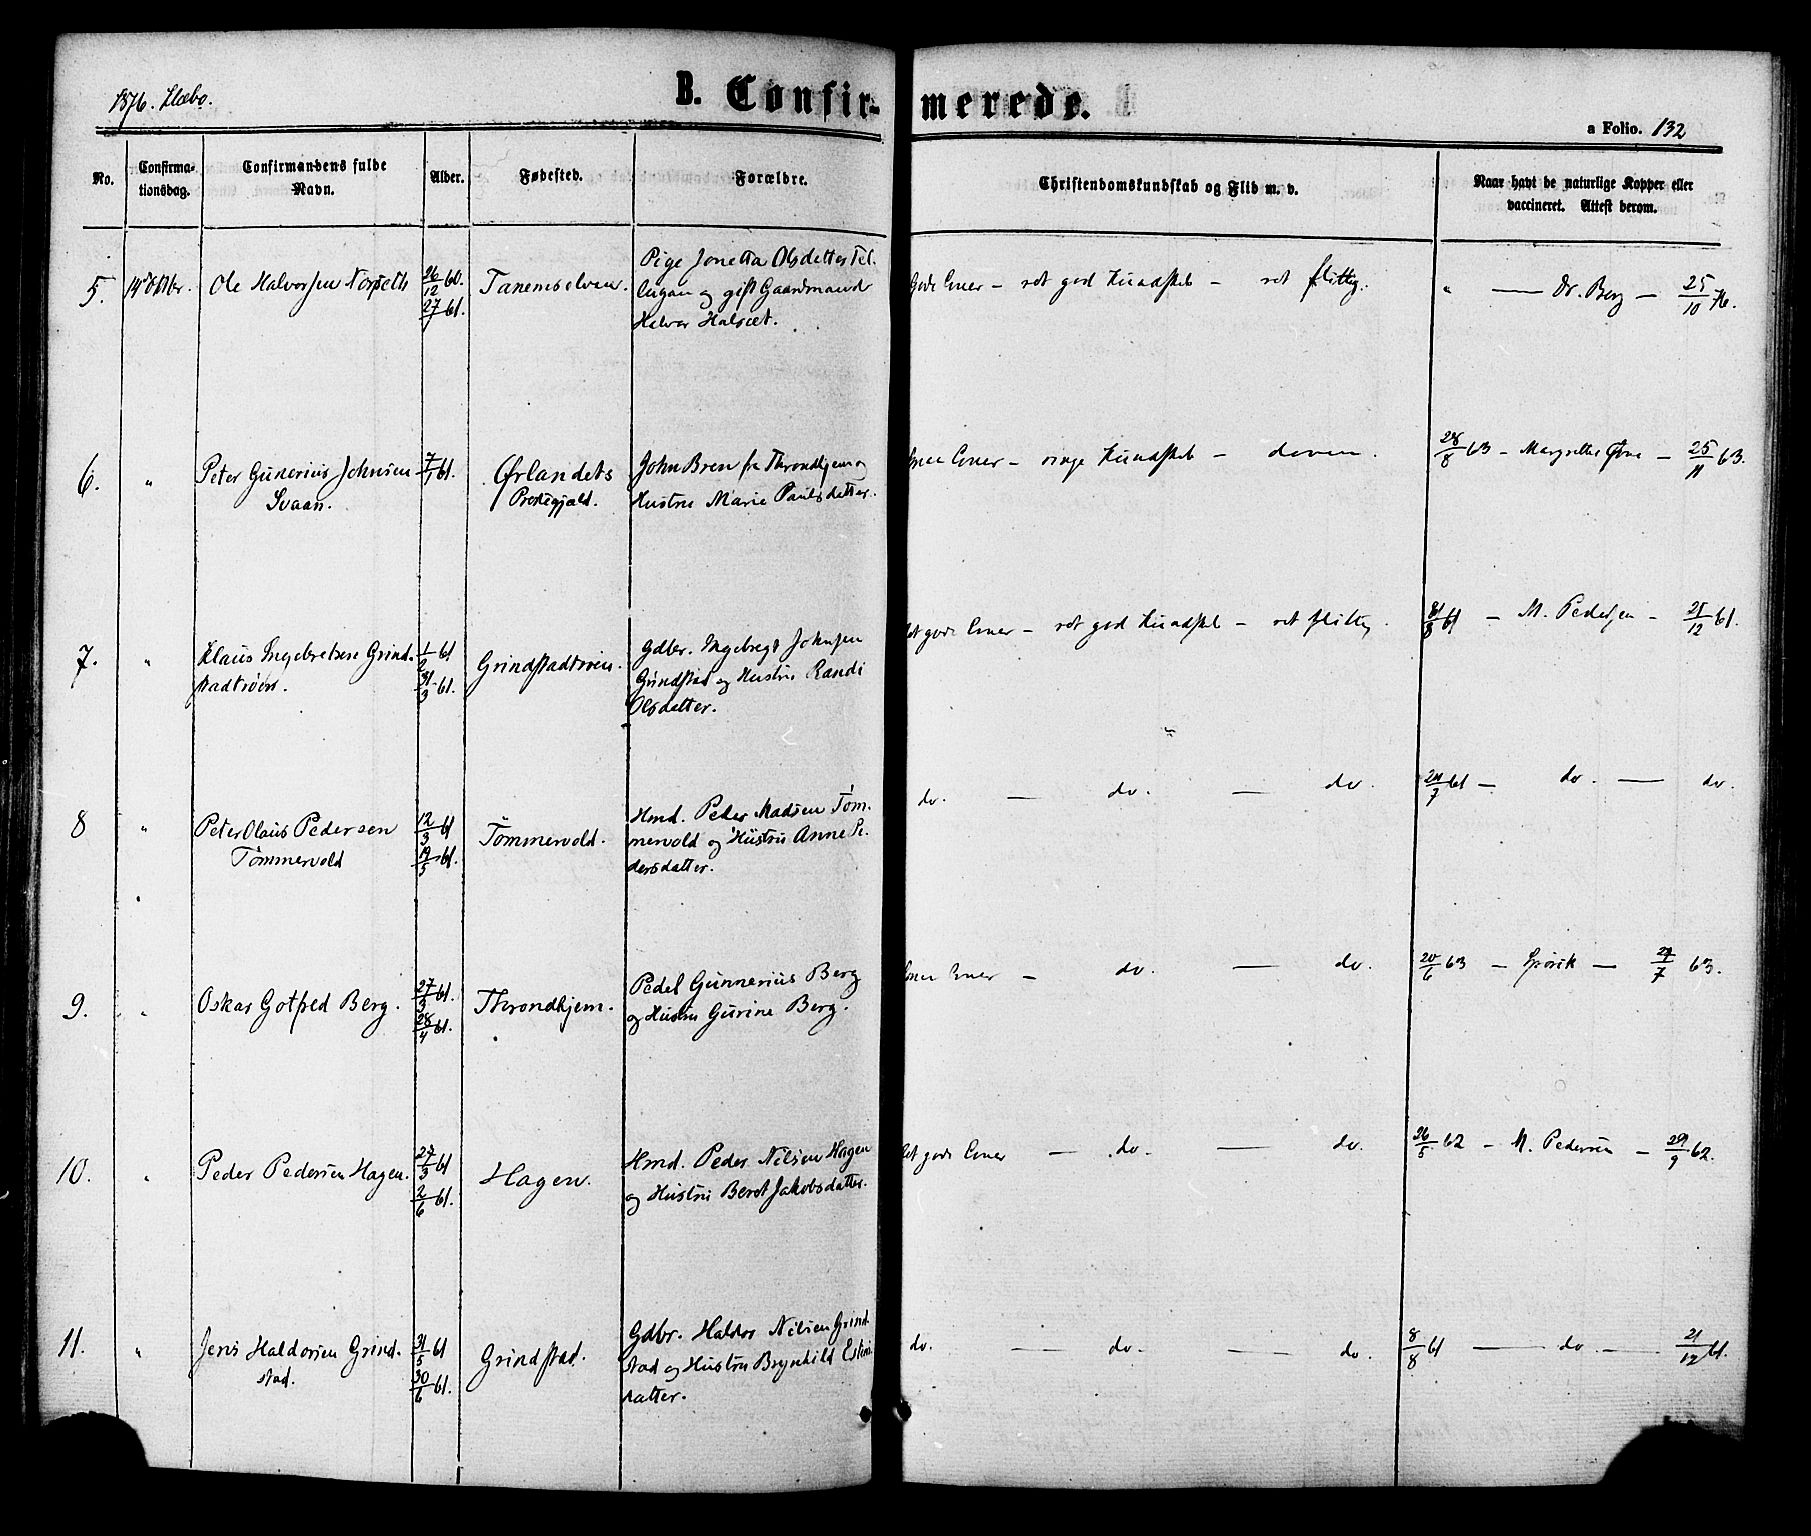 1876. Klæbo.
B. Confir-merede.
a Folio. 132
No.
Confirma-
tionsdag.
Confirmandens fulde
Navn.
Alder.
Fødested.
Forældre.
Christendomskundskab og Flid m. v.
Naar havt de naturlige Kopper eller
vaccineret. Attest derom.
5. 14 Oktbr. Ole Halvorsen 26/12 60. 27/7 61. Tanemselven. Pige Jonetta Olsdatter Tel-
lugan og gift Gaardmand
Halvor Halsæt.
Gode Evner – ret god Kundskab – ret flittig. " — Dr. Berg – 25/10 76.
6. " Peter Gunerius Johnsen 7/1 61. Ørlandets John Bren fra Throndhjem og
Svaan. Prestegjæld. Hustru Marie Paulsdatter.
Evner – ringe Kundskab – doven. 28/8 63 – Margrethe – 25/11 63.
7. " Klaus Ingebretsen Grind- 1/2 61 Grindstadtrøen. Gdbr. Ingebregt Johnsen
stadtrøen. 31/3 61. Grindstad og Hustru Randi
Olsdatter.
Ret gode Evner – ret god Kundskab – ret flittig. 61 – M. Pedersen – 21/12 61.
8 " Peter Olaus Pedersen 12/3 61 Tømmervold. Hmd. Peder Madsen Tøm-
Tømmervold 19/5 61. mervold og Hustru Anne Pe-
dersdatter.
do. — do. — do. 24/7 61 – do. — do.
9. " Oskar Gotfred Berg. 27/3 61. 28/4 61. Throndhjem. Pedel Gunnerius Berg
og Hustru Gurine Berg.
Evner – do. — do. 20/6 63 – Spørck – 27/7 63.
10. " Peder Pedersen Hagen. 27/3 61 2/6 61. Hagen. Hmd. Peder Nilsen Hagen
og Hustru Beret Jakobsdatter.
Ret gode Evner — do. — do. 26/5 62 – M. Pedersen – 29/9 62.
11. " Jens Haldorsen Grind- 31/5 61 Grindstad. Gdbr. Haldor Nilsen Grind-
stad. 30/6 61. stad og Hustru Brynhild Estens-
datter.
do. — do. — do. 8/8 61 — do. — 21/12 61.